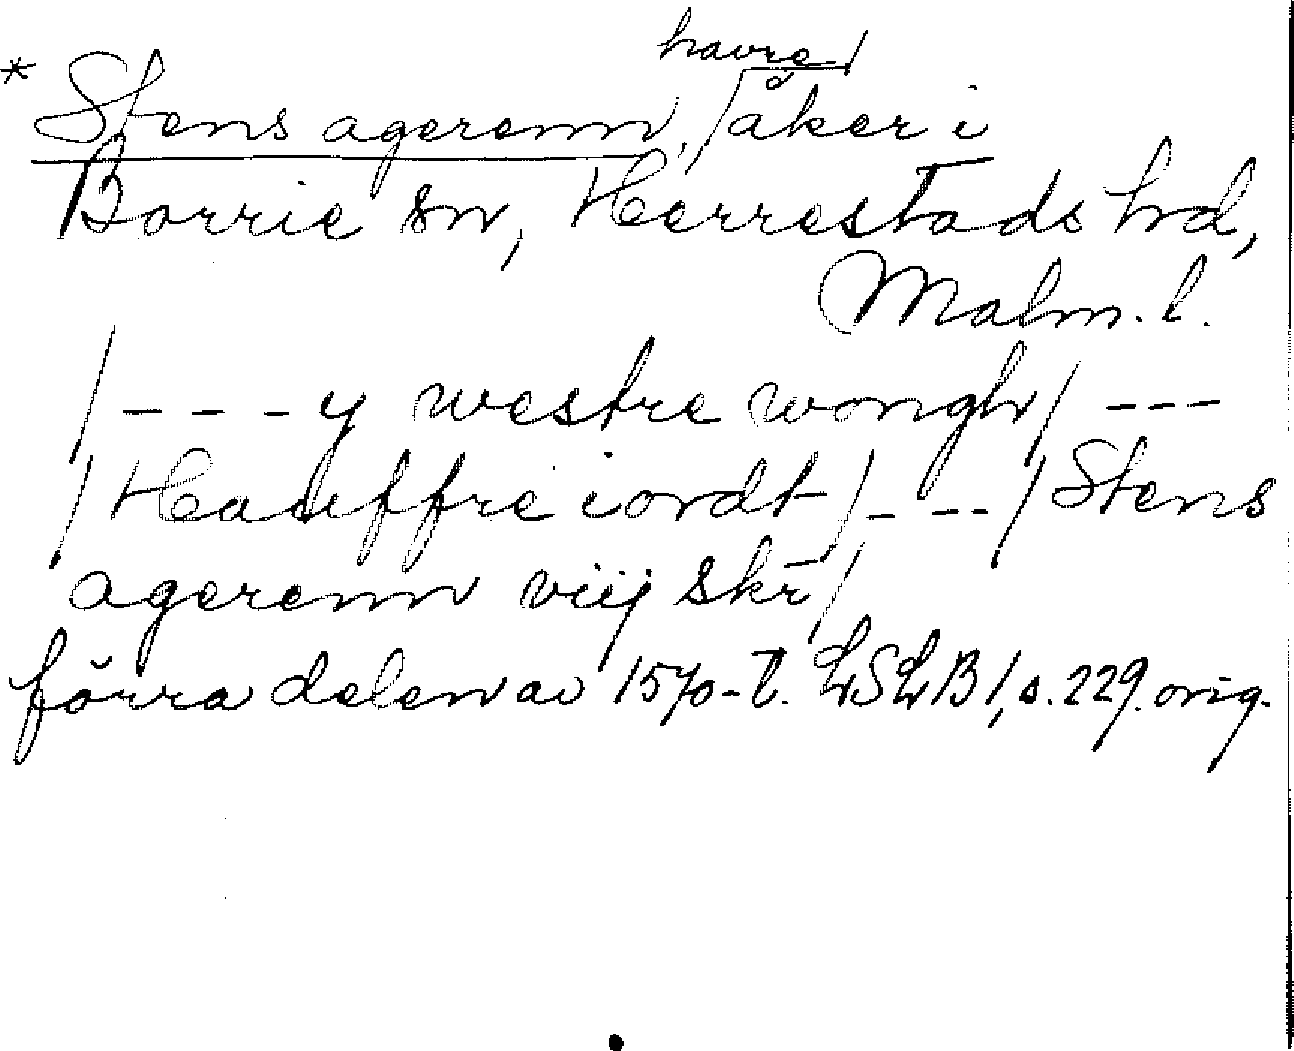 havre/
* Stens agerenn, /åker i
Borrie sn, Herrestads hd,
Malm. l.
/ - - - y westre wongh/ - - -
/Hauffre iordt/ - - - /Stens
agerenn viij skr/
förra delen av 1570-t. LSLB 1, s. 229. orig.